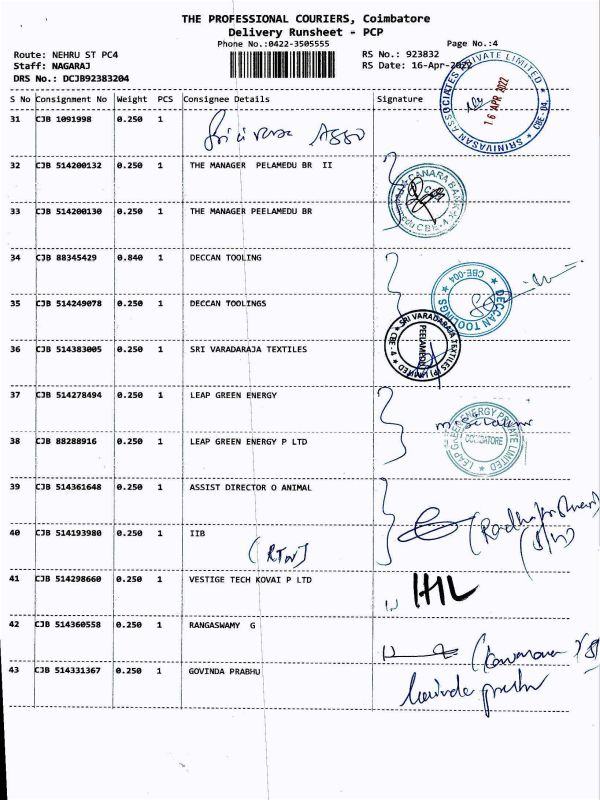 THE PROFESSIONAL COURIERS, Coimbatore
Delivery Runsheet - PCP
Phone No.:0422-3505555
Page No.:4
Route: NEHRU ST PC4
RS No.: 923832
Staff: NAGARAJ
RS Date: 16-Apr-2022
DRS No.: DCJB92383204
S No Consignment No Weight PCS Consignee Details Signature
31 CJB 1091998 0.250 1
SRINIVASAN ASSOCIATES PRIVATE LIMITED ★ CBE-04 ★
16 APR 2022
32 CJB 514200132 0.250 1 THE MANAGER PELAMEDU BR II
CANARA BANK
33 CJB 514200130 0.250 1 THE MANAGER PEELAMEDU BR
34 CJB 88345429 0.840 1 DECCAN TOOLING
DECCAN TOOLINGS ★ CBE-004 ★
35 CJB 514249078 0.250 1 DECCAN TOOLINGS
36 CJB 514383005 0.250 1 SRI VARADARAJA TEXTILES
SRI VARADARAJA TEXTILES (P) LIMITED ★ CBE - 4 ★
PEELAMEDU
37 CJB 514278494 0.250 1 LEAP GREEN ENERGY
LEAP GREEN ENERGY PRIVATE LIMITED ★
COIMBATORE
38 CJB 88288916 0.250 1 LEAP GREEN ENERGY P LTD
39 CJB 514361648 0.250 1 ASSIST DIRECTOR O ANIMAL
40 CJB 514193980 0.250 1 IIB
41 CJB 514298660 0.250 1 VESTIGE TECH KOVAI P LTD
42 CJB 514360558 0.250 1 RANGASWAMY G
43 CJB 514331367 0.250 1 GOVINDA PRABHU
Govinda prabhu